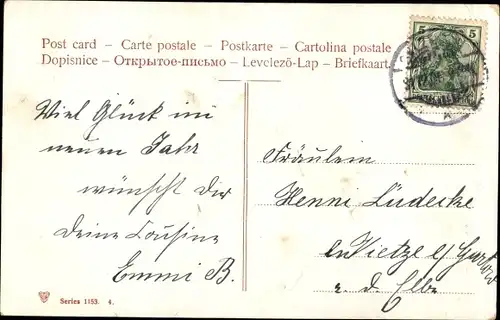 Post card – Carte postale – Postkarte – Cartolina postale
Dopisnice – Открытое-письмо – Levelező-Lap – Briefkaart.
5 5
Viel Glück im
neuen Jahr
wünscht Dir
Deine Cousine
Emmi B.
Fräulein
Henni Lüdecke
Vietze
a. d. Elbe
Series 1153. 4.